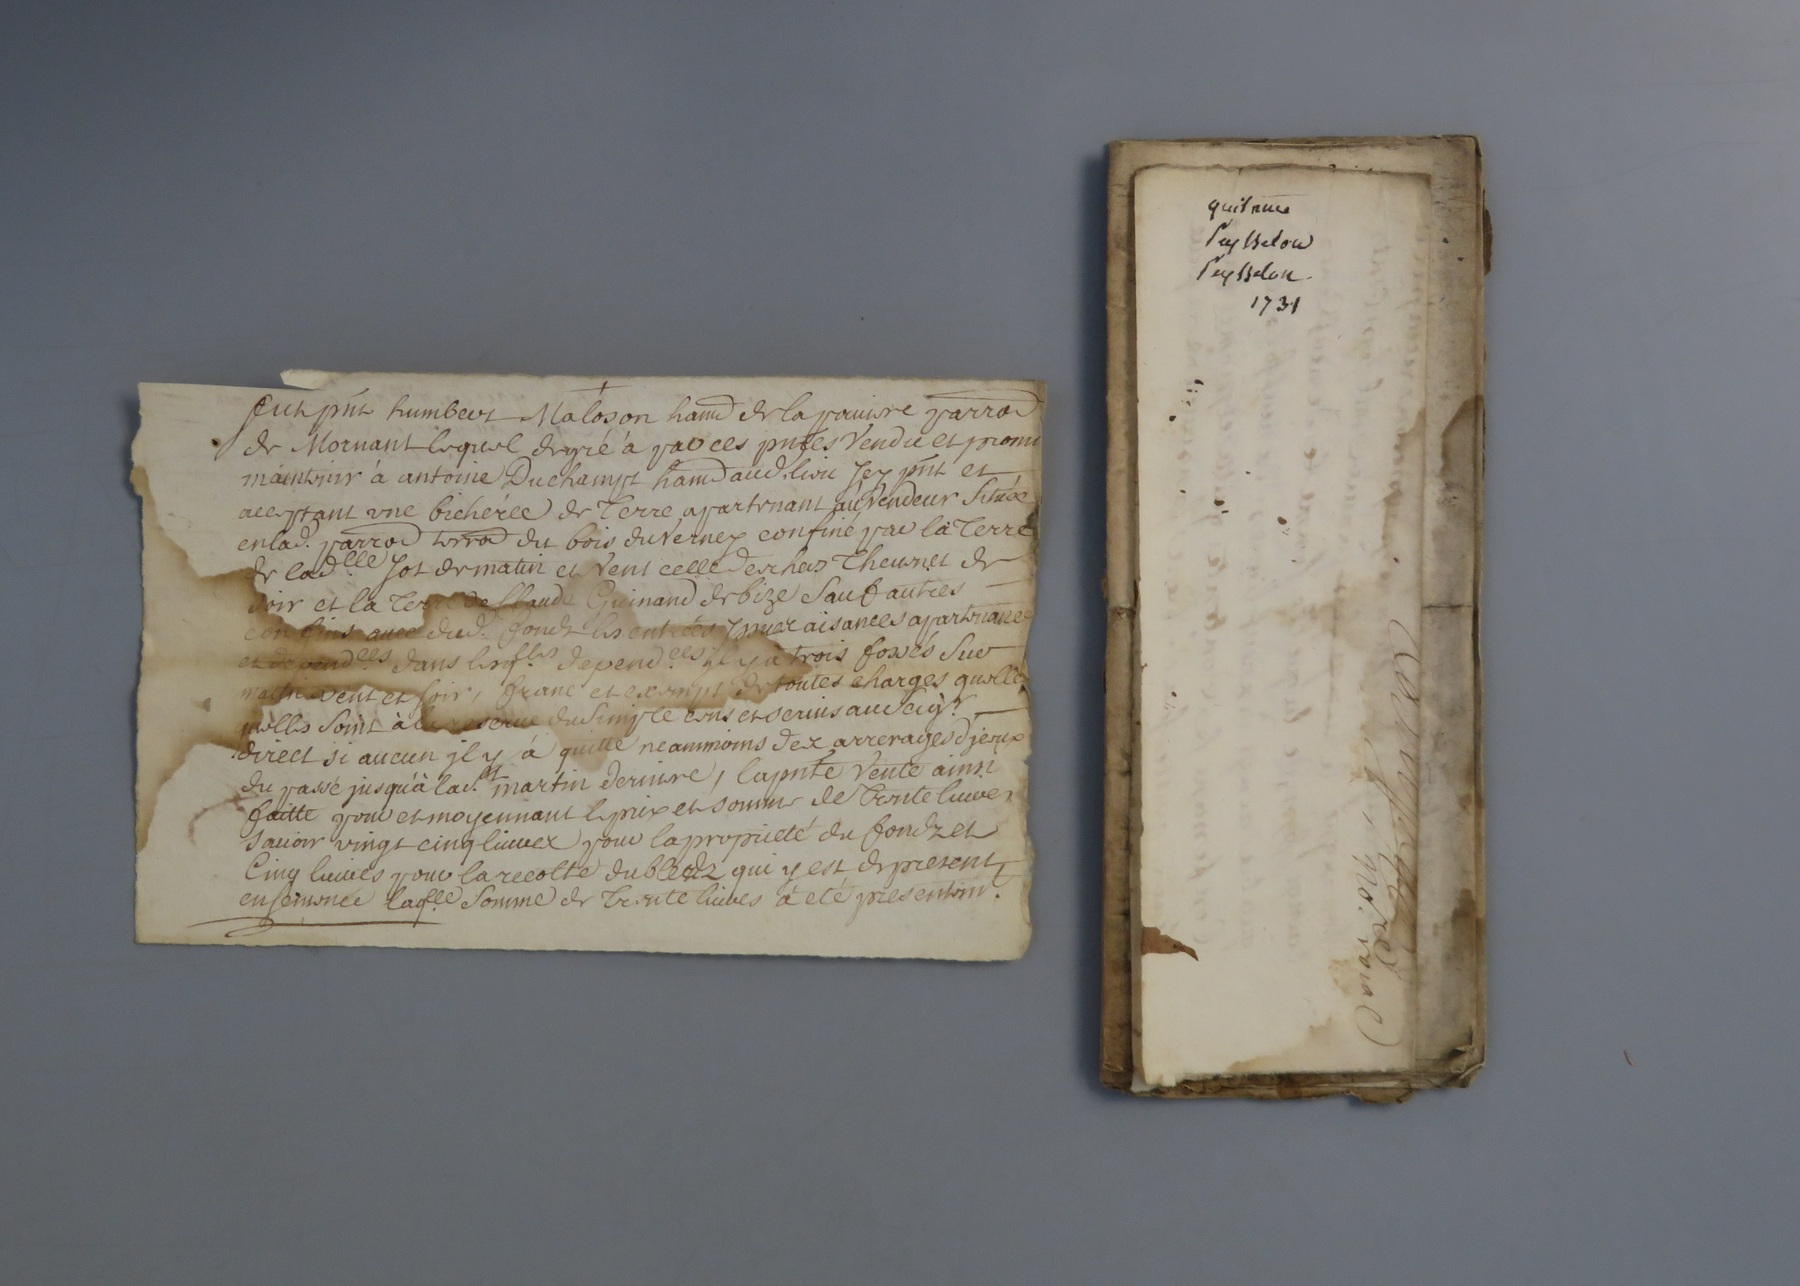 fut pñt humbert Maloson hañd de la poniere parroā
de Mornant lequel de gré à par ces pntes Vendu et promi
maintenir à antoine Duchampt hañd aud. lieu Jcy pñt et
acceptant une bicherée de Terre apartenant au vendeur Située
en lad. parroā terroā du bois du Verney confiné par la Terre
de lad.elle Jot de matin et Vent celle des hers Theuret de
soir et la Terre de Claude Guinand de bize Sauf autres
confins avec dud. fondz les entrées ysues aisances apartenances
et depend.ces dans les qlles depend.ces jl y à trois fossés Sur
matin vent et soir, franc et exempt de toutes charges quelle
quelles Soint à la reserve du Simple cens et servis au Seigr.
direct si aucun jl y à quitte neanmoins des arrerages d'jceux
du passé jusqu'à la St. martin derniere, la pnte Vente ainsi
faitte pour et moyennant le prix et somme de Trente livres
savoir vingt cinq livres pour la proprieté du fondz et
Cinq livres pour la recolte du bledz qui y est de present
ensemencé laqlle Somme de Trente livres à eté presentemt.
quitance
Peysselou
Peysselon
1731